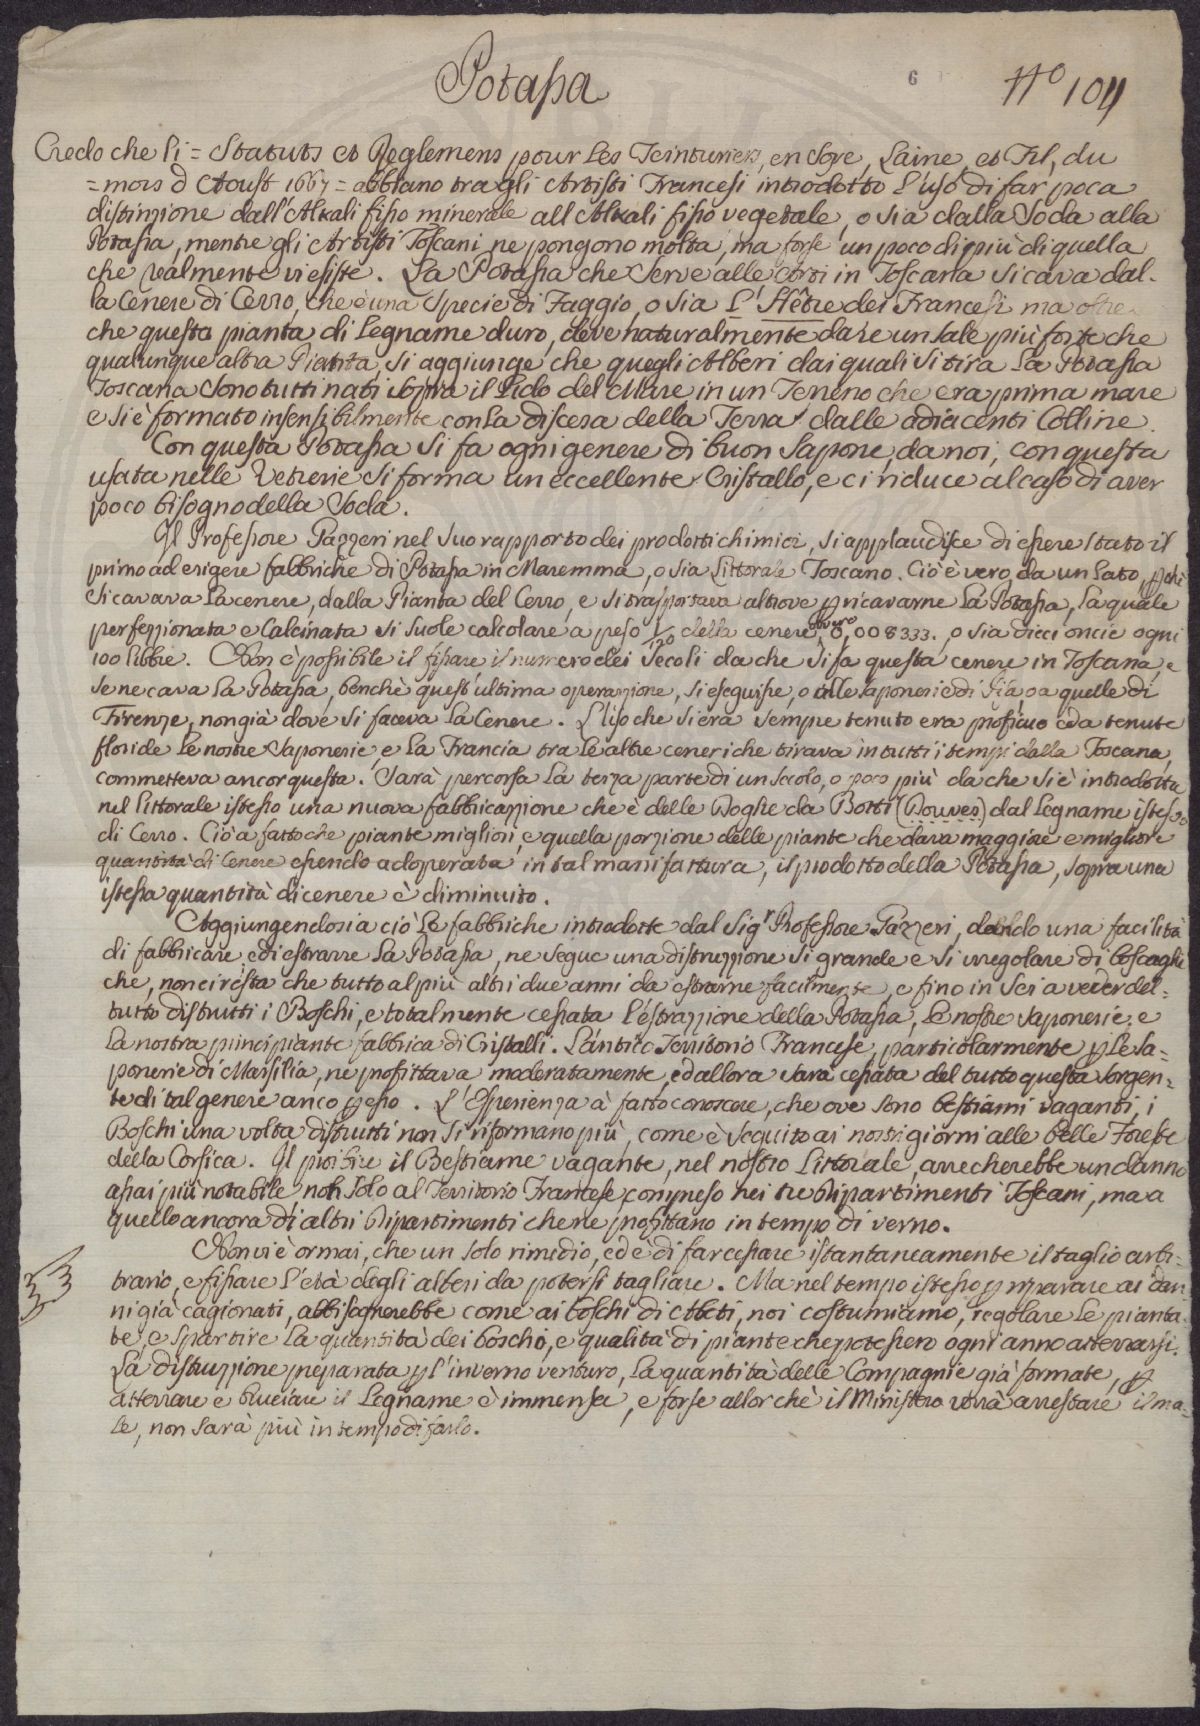 Potassa
6
N.º 104
Credo che li = Statuts et Reglemens pour les Teinturiers, en Soye, Laine, et Fil, du
= mois d'Aoust 1667 = abbiano tra gli Artisti Francesi introdotto l'uso di far poca
distinzione dall'Alkali fisso minerale all'Alkali fisso vegetale, o sia dalla Soda alla
Potassa, mentre gli Artisti Toscani ne pongono molta, ma forse un poco di più di quella
che realmente vi esiste. La Potassa che serve alle arti in Toscana si cava dal-
la Cenere di Cerro, che è una Specie di Faggio, o sia L'Hêtre dei Francesi ma oltre
che questa pianta di legname duro, deve naturalmente dare un sale più forte che
qualunque altra Pianta, si aggiunge che quegli Alberi dai quali si tira la Potassa
Toscana sono tutti nati sopra il Lido del Mare in un Terreno che era prima mare
e si è formato insensibilmente con la discesa della Terra dalle adiacenti Colline.
Con questa Potassa si fa ogni genere di buon Sapone da noi, con questa
usata nelle Vetrerie si forma un eccellente Cristallo, e ci riduce al caso di aver
poco bisogno della Soda.
Il Professore Gazzeri nel suo rapporto dei prodotti chimici, si applaudisce di essere stato il
primo ad erigere fabbriche di Potassa in Maremma, o sia Littorale Toscano. Ciò è vero da un lato, pchè
si cavava la cenere, dalla Pianta del Cerro, e si trasportava altrove p ricavarne la Potassa, la quale
perfezzionata e Calcinata si suole calcolare a peso 1/120 della cenere, ovvero 0,008333. o sia dieci oncie ogni
100 libbre. Non è possibile il fissare il numero dei secoli da che si fa questa cenere in Toscana, e
se ne cava la Potassa, benchè quest'ultima operazione, si eseguisse, o alle saponerie di Pisa, o a quelle di
Firenze, non già dove si faceva la Cenere. L'uso che si era sempre tenuto era proficuo ed a tenute
floride le nostre Saponerie, e la Francia tra le altre ceneri che tirava in tutti i tempi dalla Toscana,
commetteva ancor questa. Sarà percorsa la terza parte di un Secolo, o poco più da che si è introdotta
nel littorale istesso una nuova fabbricazzione che è delle Doghe da Botti (Douves) dal legname istesso
di Cerro. Ciò a fatto che piante migliori, e quella porzione delle piante che dava maggiore e migliore
quantità di Cenere essendo adoperata in tal manifattura, il prodotto della Potassa, sopra una
istessa quantità di cenere è diminuito.
Aggiungendosi a ciò le fabbriche introdotte dal Sigr Professore Gazzeri, dando una facilità
di fabbricare, ed estrarre la Potassa, ne segue una distruzzione si grande e si irregolare di boscaglie
che, non ci resta che tutto al più altri due anni da estrarne facilmente, e fino in sei a veder del =
tutto distrutti i Boschi, e totalmente cessata l'estrazzione della Potassa, le nostre Saponerie, e
la nostra principiante fabbrica di Cristalli. L'antico Territorio Francese, particolarmente p le sa =
ponerie di Marsilia, ne profittava moderatamente, ed allora sarà cessata del tutto questa sorgen =
te di tal genere anco p esso. L'Esperienza à fatto conoscere, che ove sono bestiami vaganti, i
Boschi una volta distrutti non si riformano più, come è seguito ai nostri giorni alle belle Foreste
della Corsica. Il proibire il Bestiame vagante, nel nostro Littorale, arrecherebbe un danno
assai più notabile non solo al Territorio Francese compreso nei tre Dipartimenti Toscani, ma a
quello ancora di altri Dipartimenti che ne profittano in tempo di verno.
Non vi è ormai, che un solo rimedio, ed è di far cessare istantaneamente il taglio arbi-
trario, e fissare l'età degli alberi da potersi tagliare. Ma nel tempo istesso p riparare ai dan-
ni già cagionati, abbisognerebbe come ai boschi di Abeti, noi costumiamo, regolare le pianta-
te, e spartire la quantità dei boschi, e qualità di piante che potessero ogni anno atterrarsi.
La distruzzione preparata p l'inverno venturo, la quantità delle Compagnie già formate, p
atterrare e bruciare il Legname è immensa, e forse allor chè il Ministero vorrà arrestare il ma=
le, non sarà più in tempo di farlo.